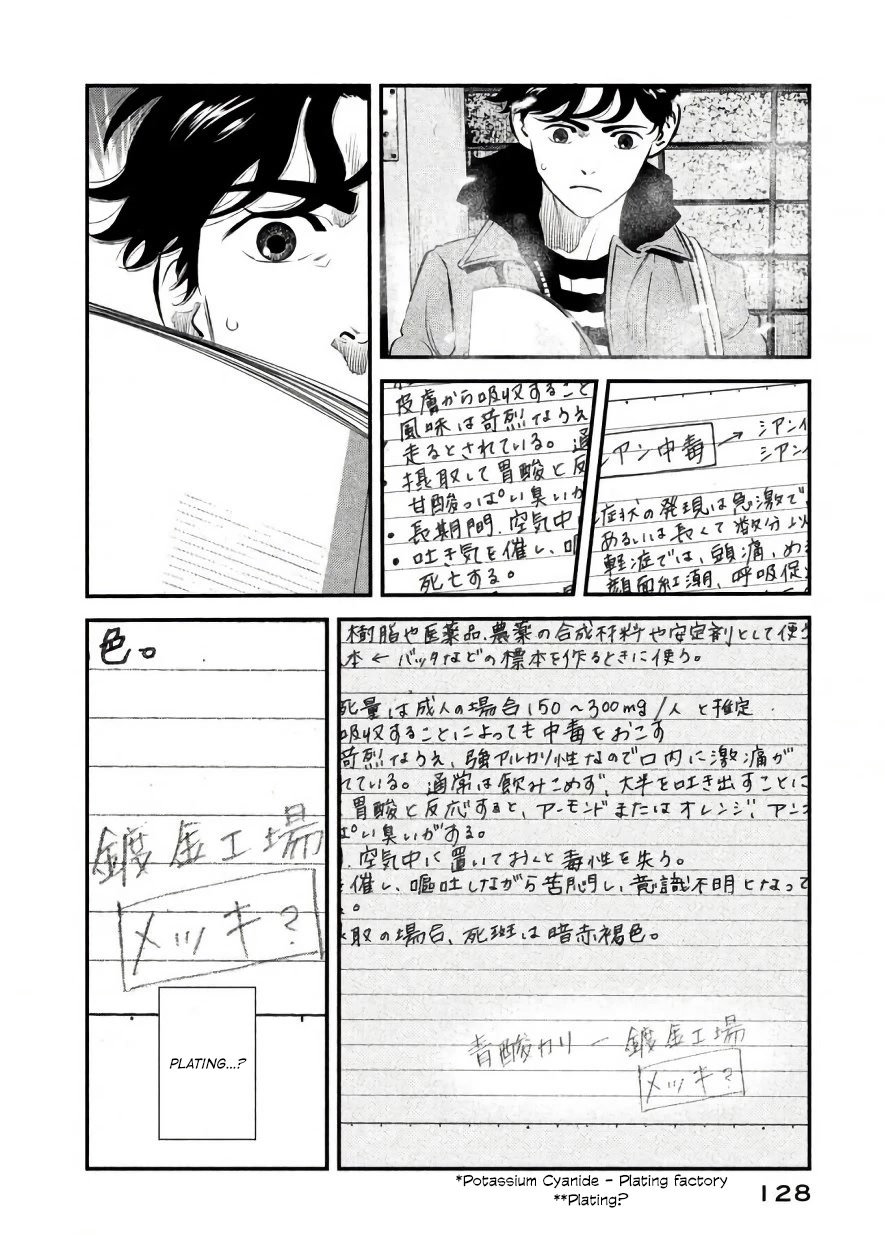 シアン中毒
→シアン
シアン
症状の発現は急激で
あるいは長くて数分以
軽症では、頭痛、め
顔面紅潮、呼吸促
皮膚から吸収すること
風味は苛烈なうえ
走るとされている。通
・摂取して胃酸と反
甘酸っぱい臭いが
・長期間、空気中
・吐き気を催し、嘔
死亡する。
樹脂や医薬品、農薬の合成材料や安定剤として使う
本 ← バッタなどの標本を作るときに使う。
死量は成人の場合150~300mg/人と推定
吸収することによっても中毒をおこす
苛烈なうえ、強アルカリ性なので口内に激痛が
れている。通常は飲みこめず、大半を吐き出すことに
胃酸と反応すると、アーモンドまたはオレンジ、アン
ぱい臭いがする。
、空気中に置いておくと毒性を失う。
催し、嘔吐しながら苦悶し、意識不明となって
。
取の場合、死斑は暗赤褐色。
青酸カリ ー 鍍金工場
メッキ?
色。
鍍金工場
メッキ?
PLATING...?
*Potassium Cyanide - Plating factory
**Plating?
128